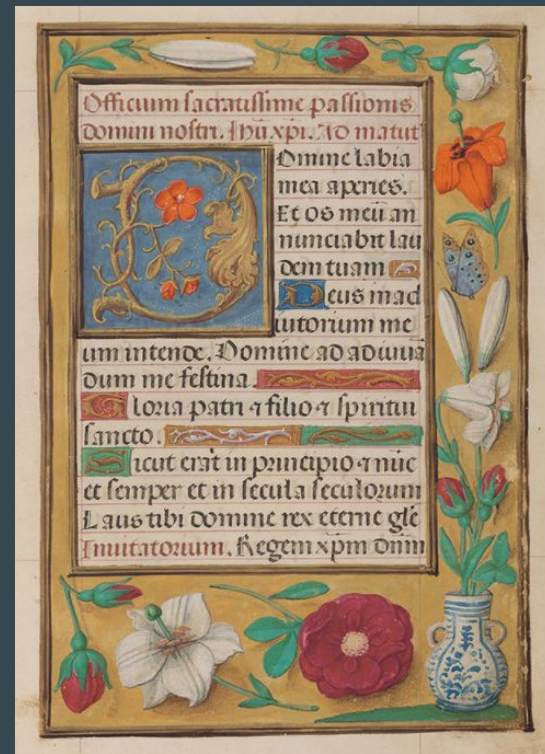 Officium sacratissime passionis
domini nostri. Ihu xpi. Ad matut
Domine labia
mea aperies.
Et os meū an
nunciabit lau
dem tuam
Deus in ad
iutorium me
um intende. Domine ad adiuuā
dum me festina.
Gloria patri ⁊ filio ⁊ spiritui
sancto.
Sicut erat in principio ⁊ nūc
et semper et in secula seculorum
Laus tibi domine rex eterne gl̄e
Inuitatorium. Regem xp̄m dn̄m